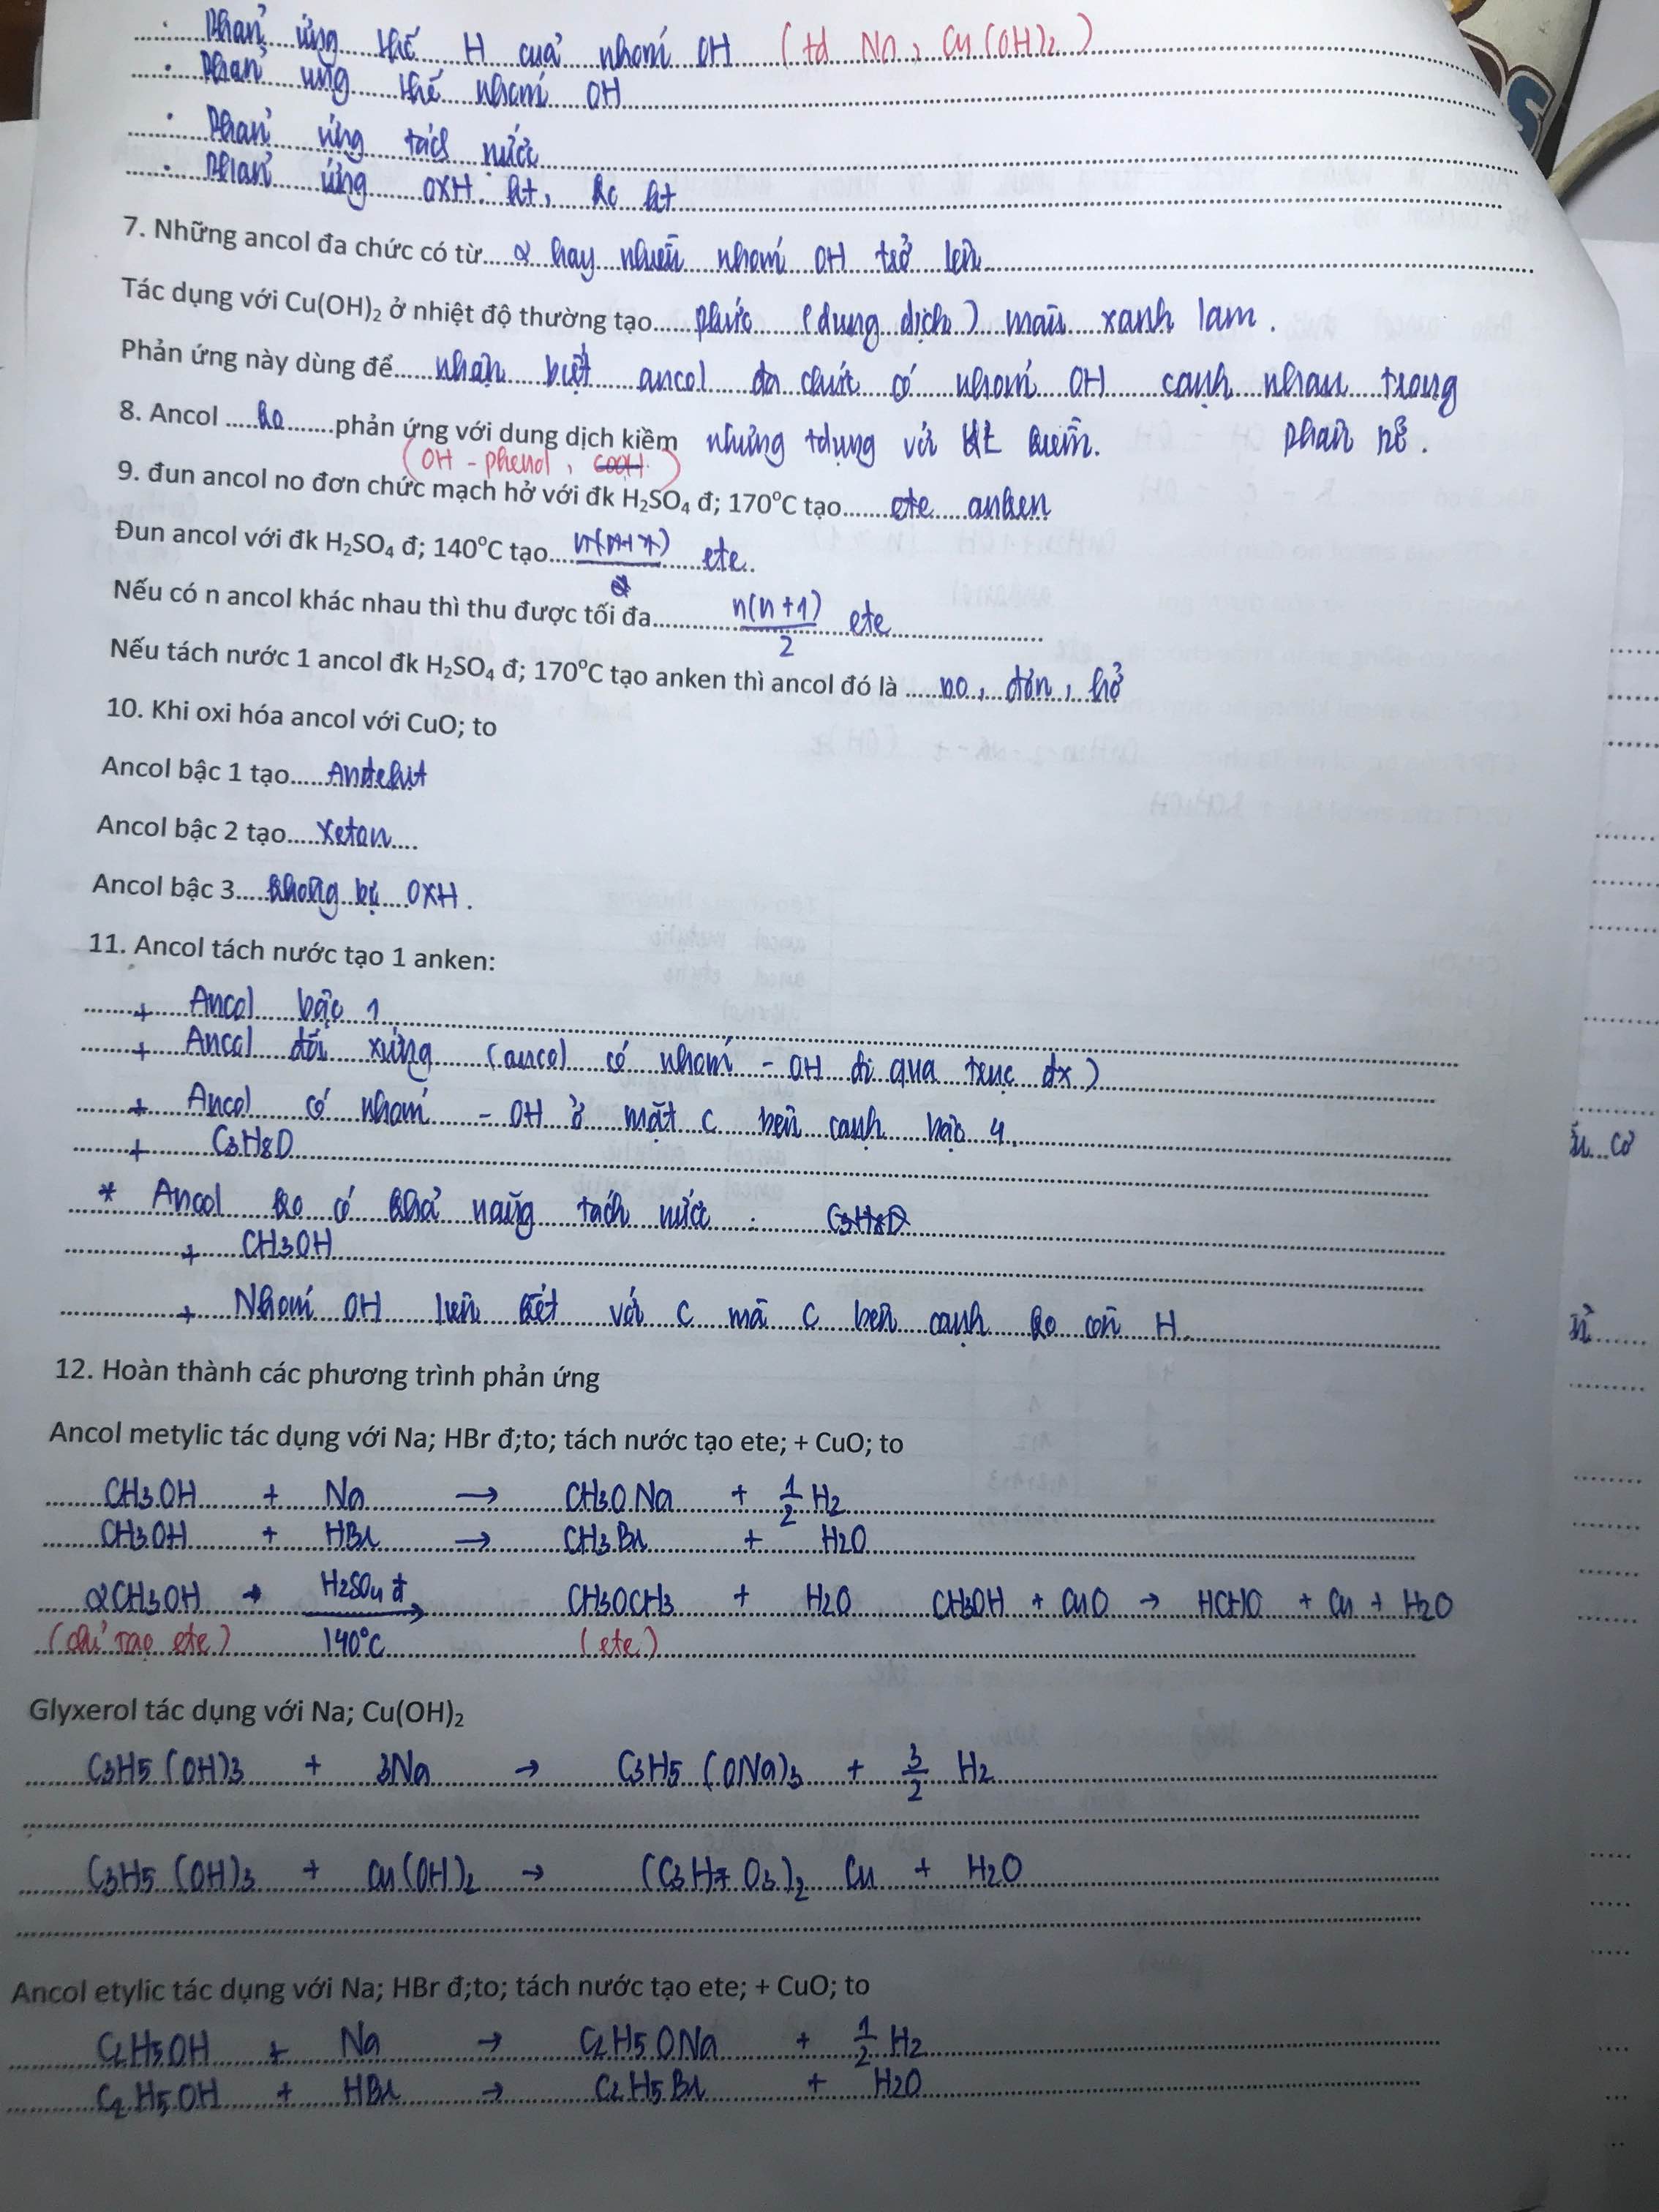 . Phản ứng thế H của nhóm OH (td Na, Cu(OH)2)
. Phản ứng thế nhóm OH
. Phản ứng tách nước
. Phản ứng OXH. ht, ko ht
7. Những ancol đa chức có từ.....2 hay nhiều nhóm OH trở lên
Tác dụng với Cu(OH)2 ở nhiệt độ thường tạo.....phức (dung dịch) màu xanh lam.
Phản ứng này dùng để.....nhận biết ancol đa chức có nhóm OH cạnh nhau trong
phân tử.
8. Ancol .....ko.......phản ứng với dung dịch kiềm nhưng tdụng với KL kiềm.
(OH - phenol, COOH)
9. đun ancol no đơn chức mạch hở với đk H2SO4 đ; 170oC tạo.......ete anken
Đun ancol với đk H2SO4 đ; 140oC tạo....n(n+1)/2 ete..
Nếu có n ancol khác nhau thì thu được tối đa..........n(n+1)/2 ete
Nếu tách nước 1 ancol đk H2SO4 đ; 170oC tạo anken thì ancol đó là .....no, đơn, hở
10. Khi oxi hóa ancol với CuO; to
Ancol bậc 1 tạo......Andehit
Ancol bậc 2 tạo.....Xeton....
Ancol bậc 3....không bị OXH.
11. Ancol tách nước tạo 1 anken:
+ Ancol bậc 1
+ Ancol đối xứng (ancol có nhóm - OH đi qua trục đx)
+ Ancol có nhóm - OH ở mặt C bên cạnh bậc 4.
+ C3H8O
* Ancol ko có khả năng tách nước : C3H8O
+ CH3OH
+ Nhóm OH liên kết với C mà C bên cạnh ko còn H.
12. Hoàn thành các phương trình phản ứng
Ancol metylic tác dụng với Na; HBr đ;to; tách nước tạo ete; + CuO; to
CH3OH + Na → CH3ONa + 1/2 H2
CH3OH + HBr → CH3Br + H2O
2CH3OH H2SO4 đ → 140°C CH3OCH3 + H2O CH3OH + CuO → HCHO + Cu + H2O
(chỉ tạo ete) (ete)
Glyxerol tác dụng với Na; Cu(OH)2
C3H5(OH)3 + 3Na → C3H5(ONa)3 + 3/2 H2
C3H5(OH)3 + Cu(OH)2 → (C3H7O3)2 Cu + H2O
Ancol etylic tác dụng với Na; HBr đ;to; tách nước tạo ete; + CuO; to
C2H5OH + Na → C2H5ONa + 1/2 H2
C2H5OH + HBr → C2H5Br + H2O